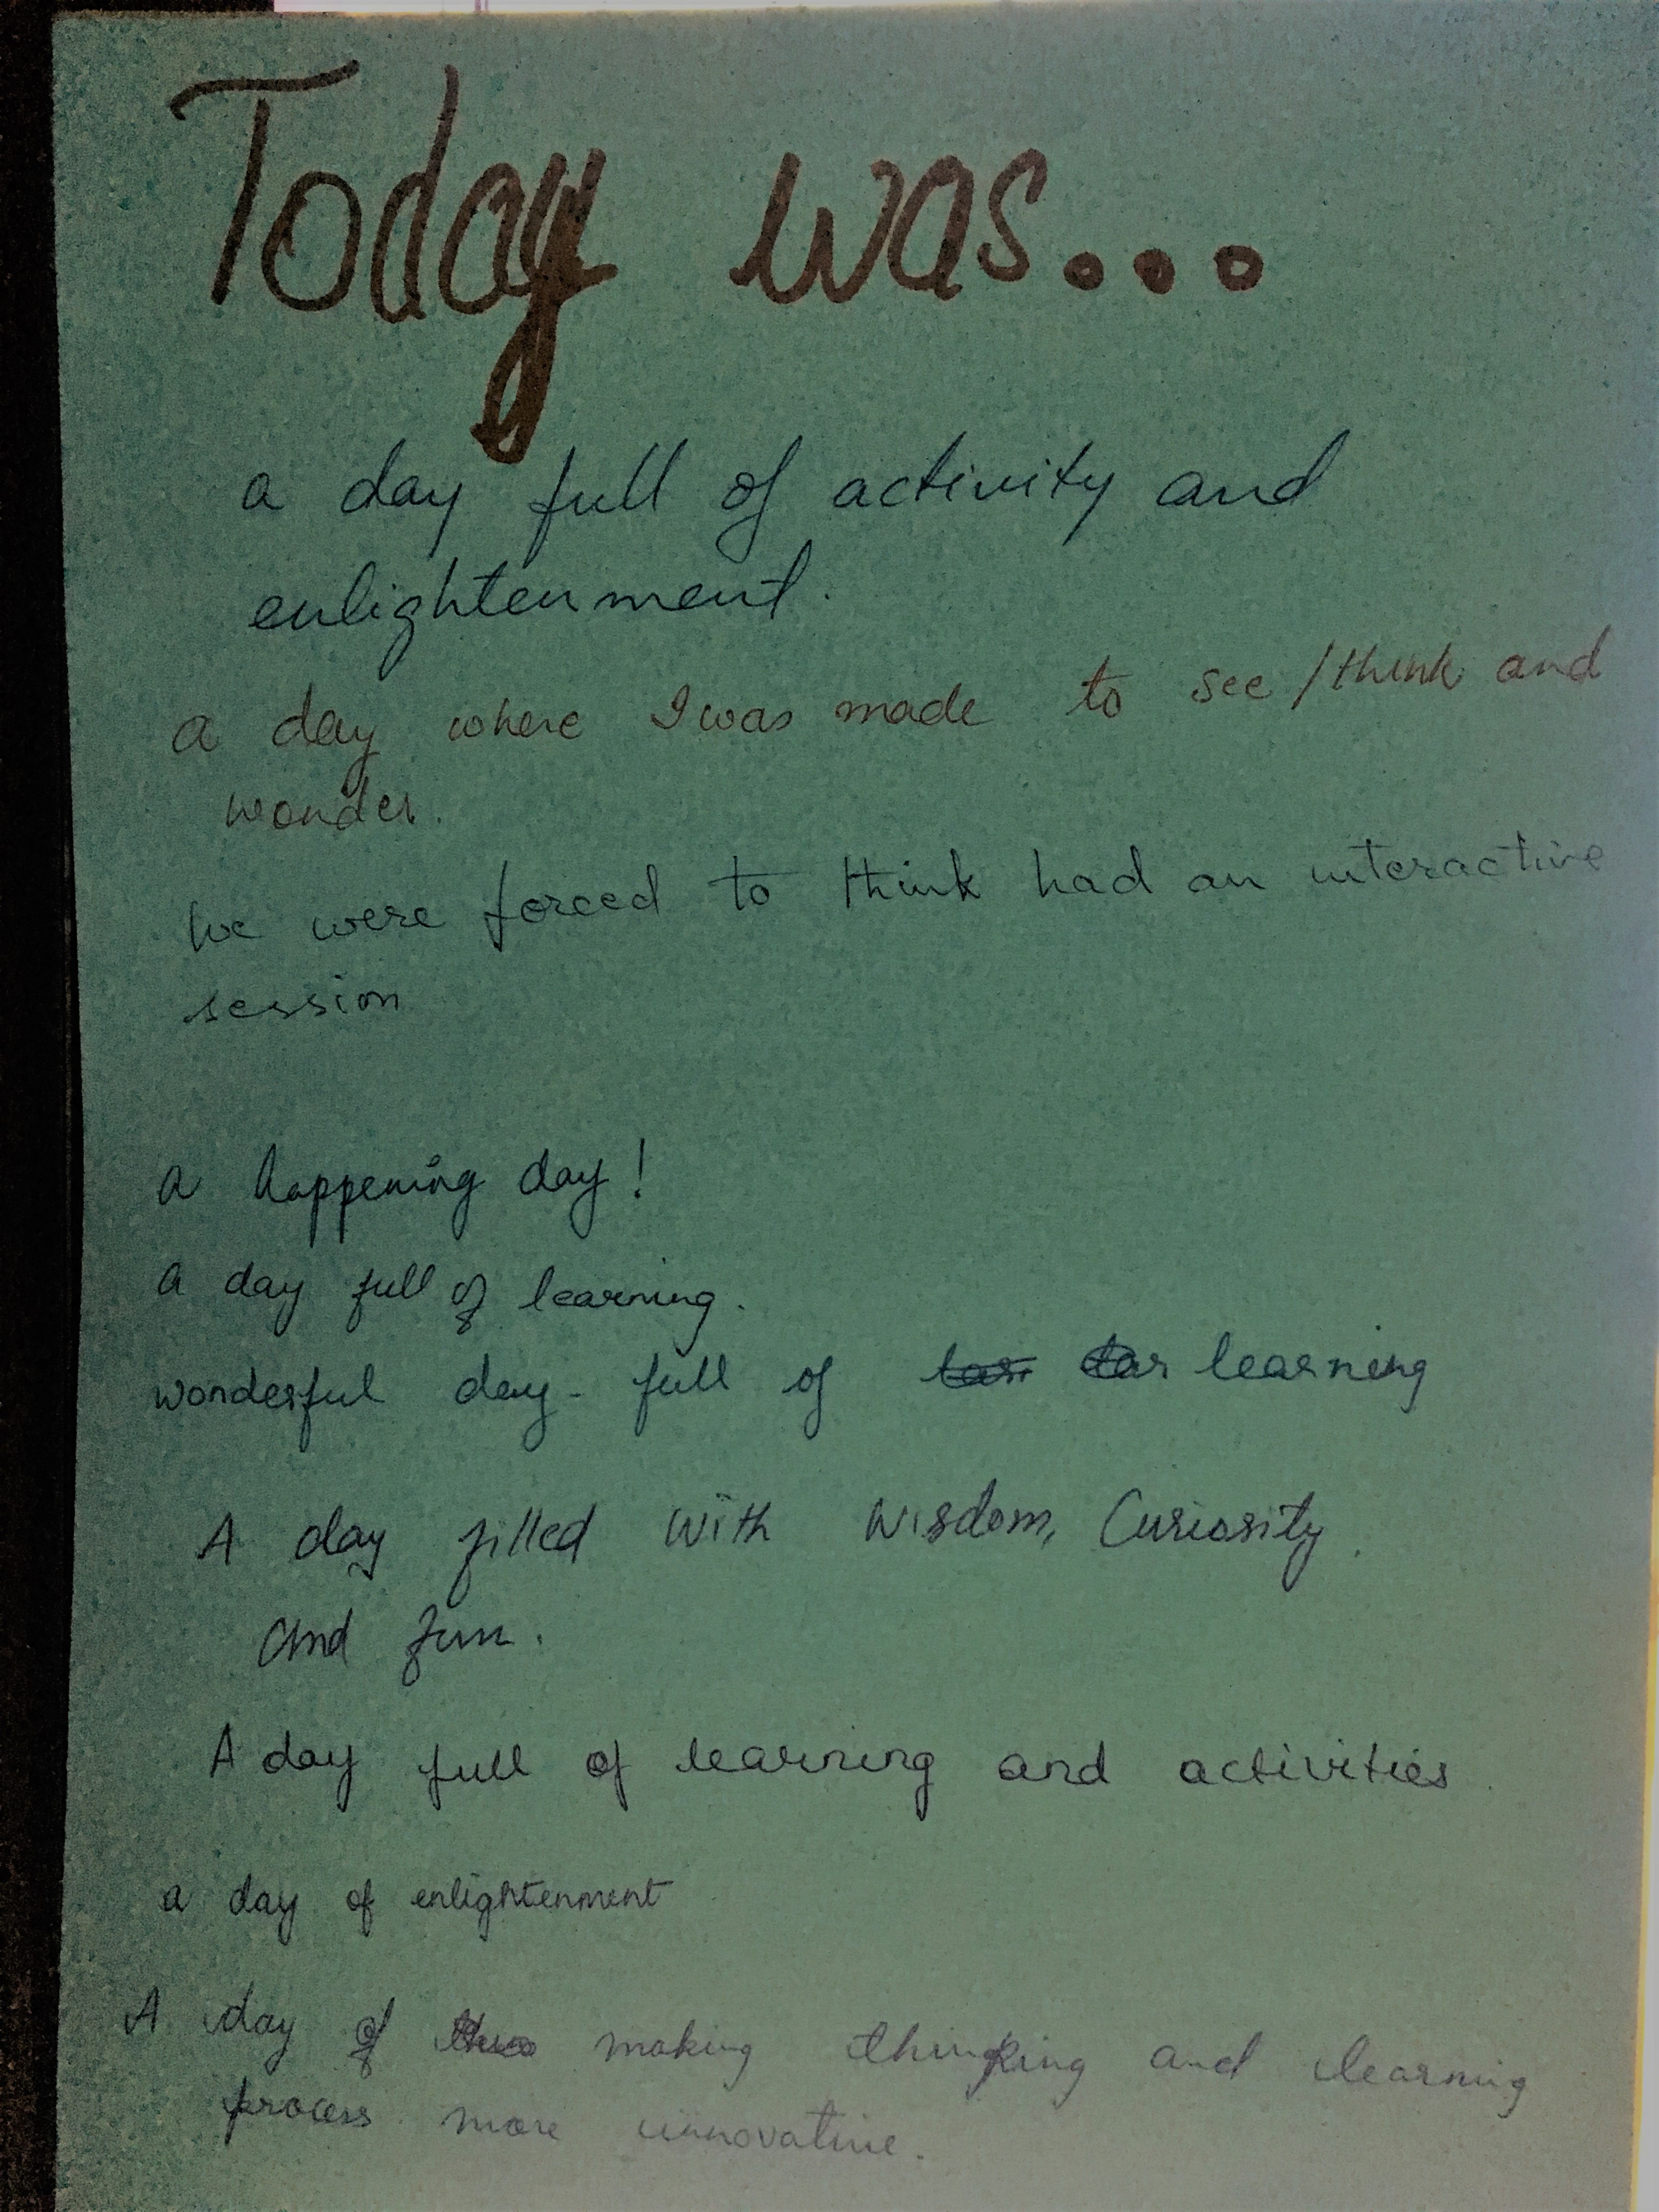 Today was...
a day full of activity and
enlightenment.
a day where I was made to see /think and
wonder.
we were forced to think had an interactive
session
a happening day!
a day full of learning.
wonderful day - full of learning
A day filled with wisdom, Curiosity
and fun.
A day full of learning and activities.
a day of enlightenment
A day of making thinking and learning
process more innovative.